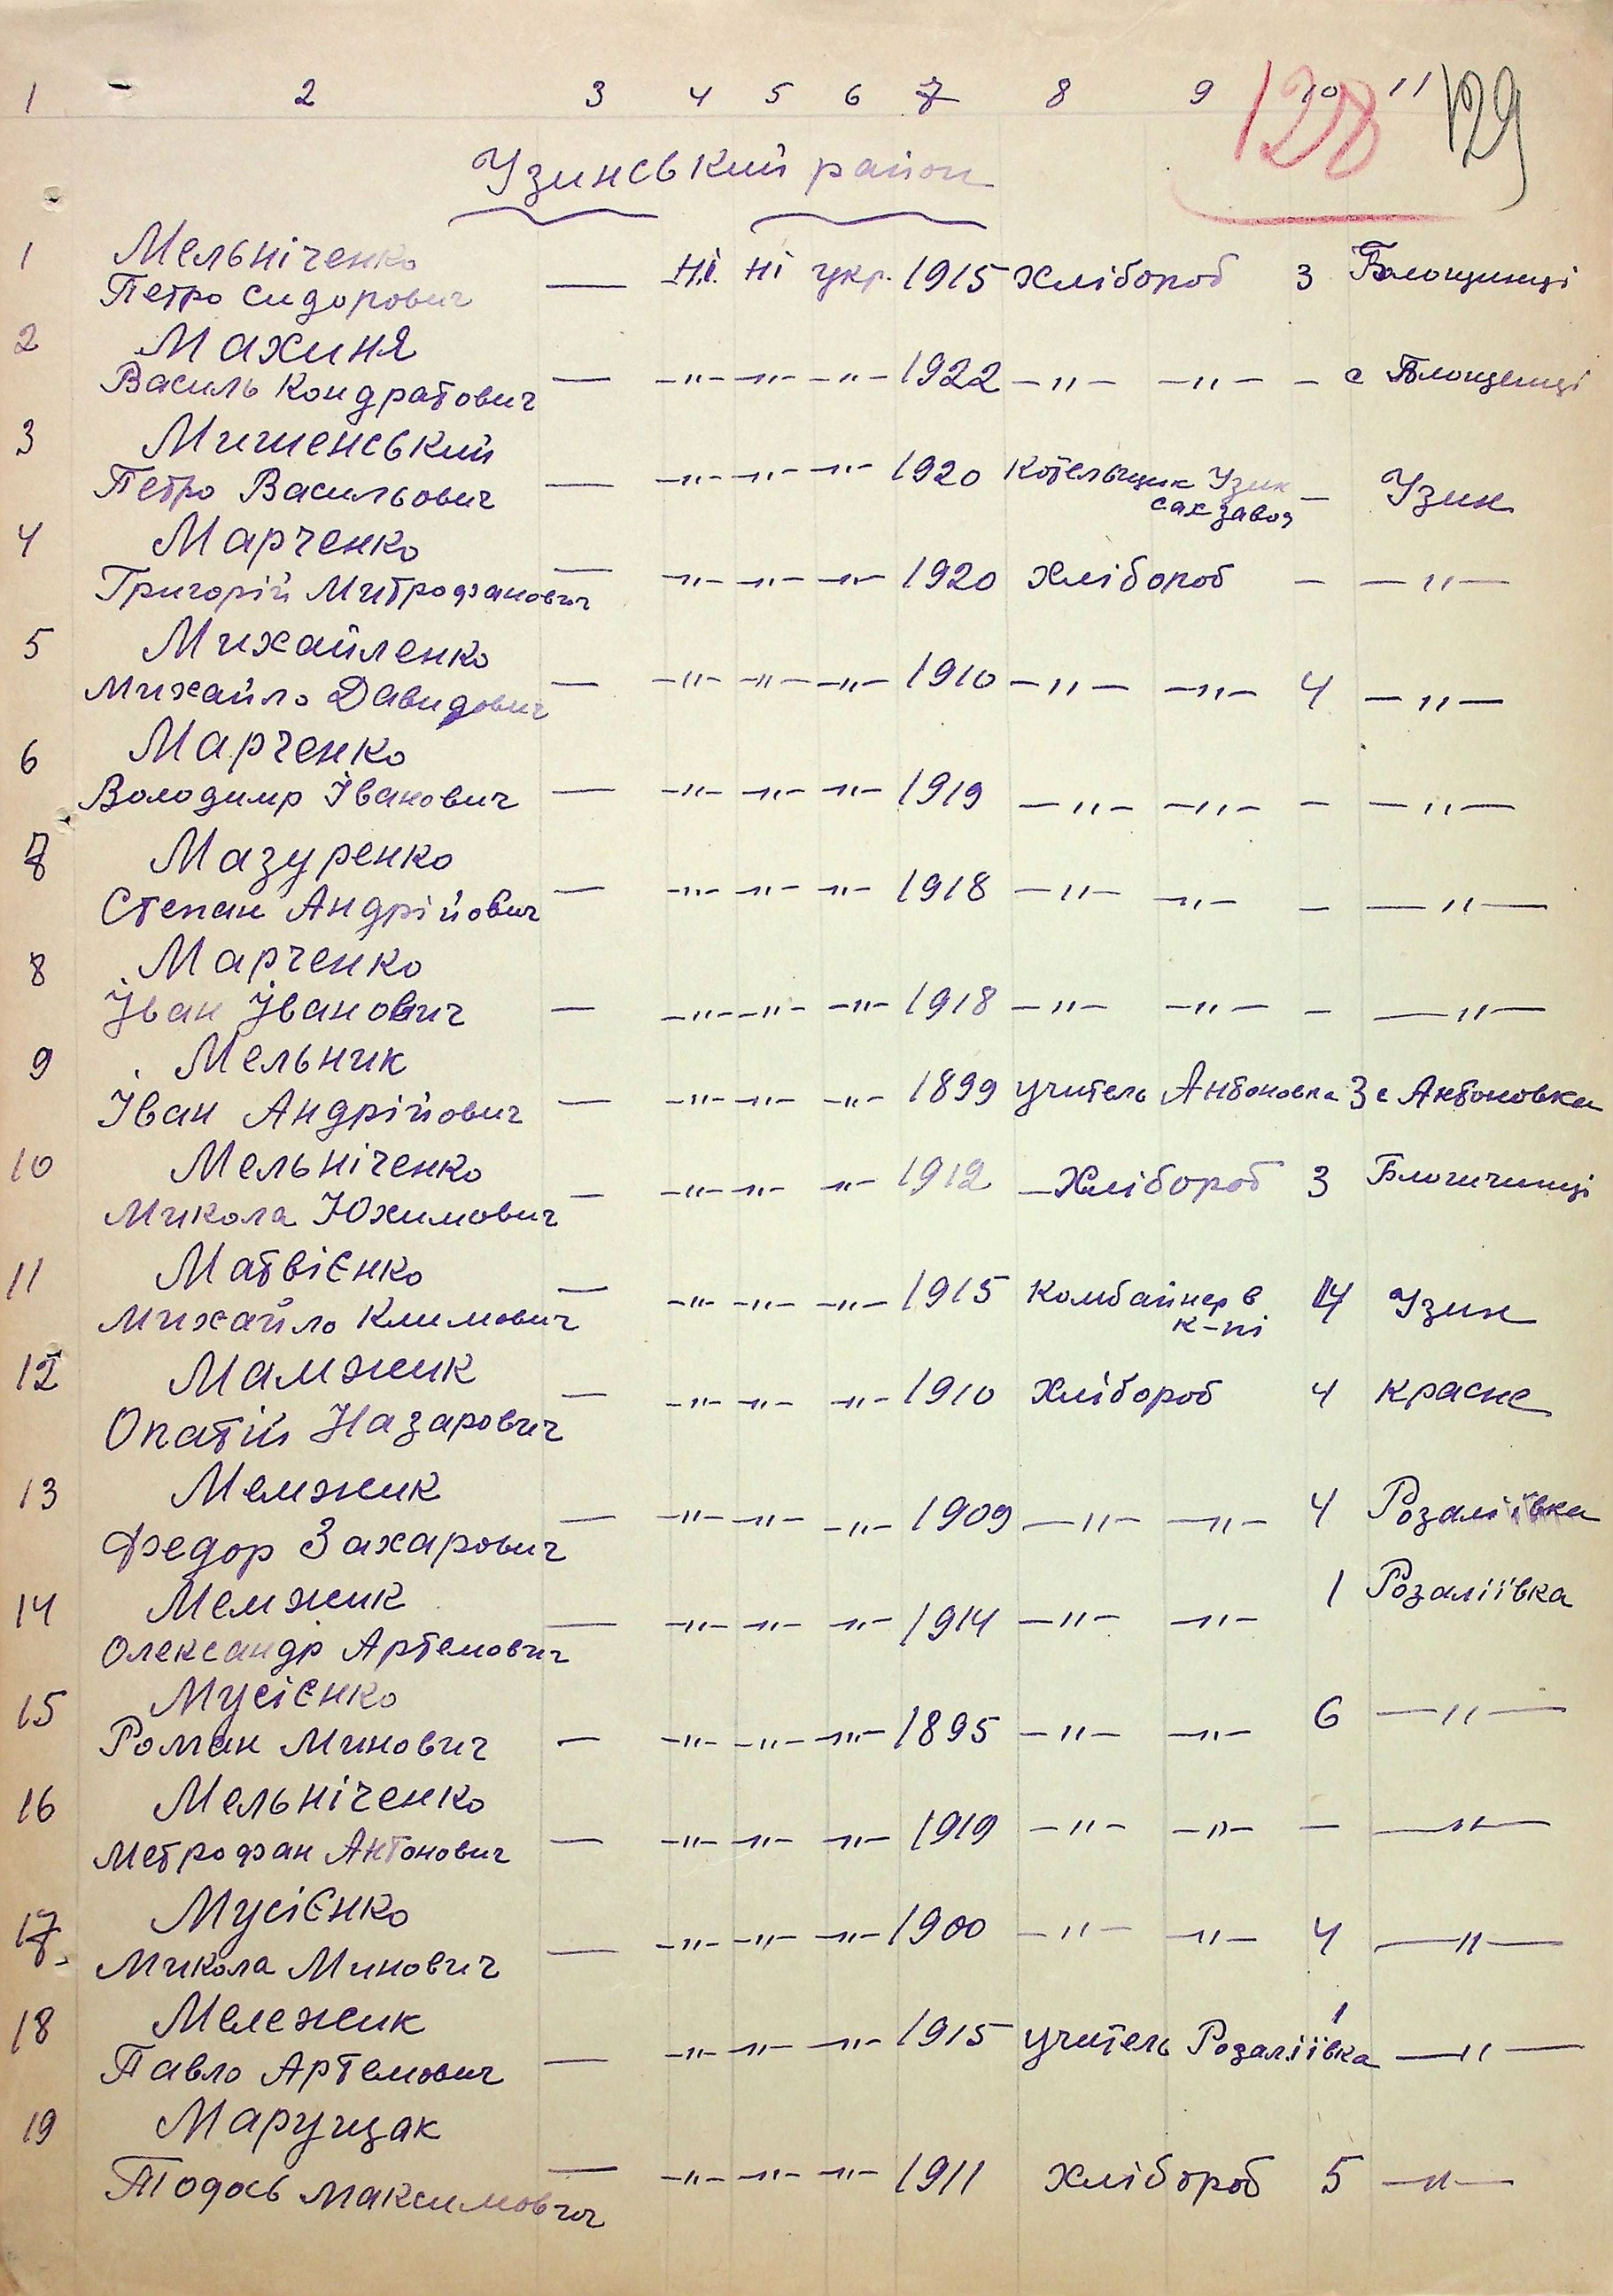 1 2 3 4 5 6 7 8 9 10 11
128 129
Узинський район
1 Мельніченко
Петро Сидорович — Ні. Ні укр. 1915 Хлібороб 3 Блощинці
2 Махиня
Василь Кондратович — –"– –"– –"– 1922 –"– –"– – с Блощенці
3 Мишенський
Петро Васильович — –"– –"– –"– 1920 Котельщик Узин
сахзавод – Узин
4 Марченко
Григорій Митрофанович — –"– –"– –"– 1920 Хлібороб – –"–
5 Михайленко
Михайло Давидович — –"– –"– –"– 1910 –"– –"– 4 –"–
6 Марченко
Володимир Іванович — –"– –"– –"– 1919 –"– –"– – –"–
7 Мазуренко
Степан Андрійович — –"– –"– –"– 1918 –"– –"– – –"–
8 Марченко
Іван Іванович — –"– –"– –"– 1918 –"– –"– – –"–
9 Мельник
Іван Андрійович — –"– –"– –"– 1899 учитель Антоновка 3 с Антоновка
10 Мельніченко
Микола Юхимович — –"– –"– –"– 1912 – Хлібороб 3
11 Матвієнко
Михайло Климович — –"– –"– –"– 1915 Комбайнер в
к-пі 4 Узин
12 Мамжик
Опатій Назарович — –"– –"– –"– 1910 Хлібороб 4 Красне
13 Мемжик
Федор Захарович — –"– –"– –"– 1909 –"– –"– 4 Розаліївка
14 Мемжик
Олександр Артемович — –"– –"– –"– 1914 –"– –"– 1 Розаліївка
15 Мусієнко
Роман Минович — –"– –"– –"– 1895 –"– –"– 6 –"–
16 Мельніченко
Метрофан Антонович — –"– –"– –"– 1919 –"– –"– – –"–
17 Мусієнко
Микола Минович — –"– –"– –"– 1900 –"– –"– 4 –"–
18 Мележик
Павло Артемович — –"– –"– –"– 1915 учитель Розаліївка 1 –"–
19 Марущак
Тодось Максимович — –"– –"– –"– 1911 Хлібороб 5 –"–